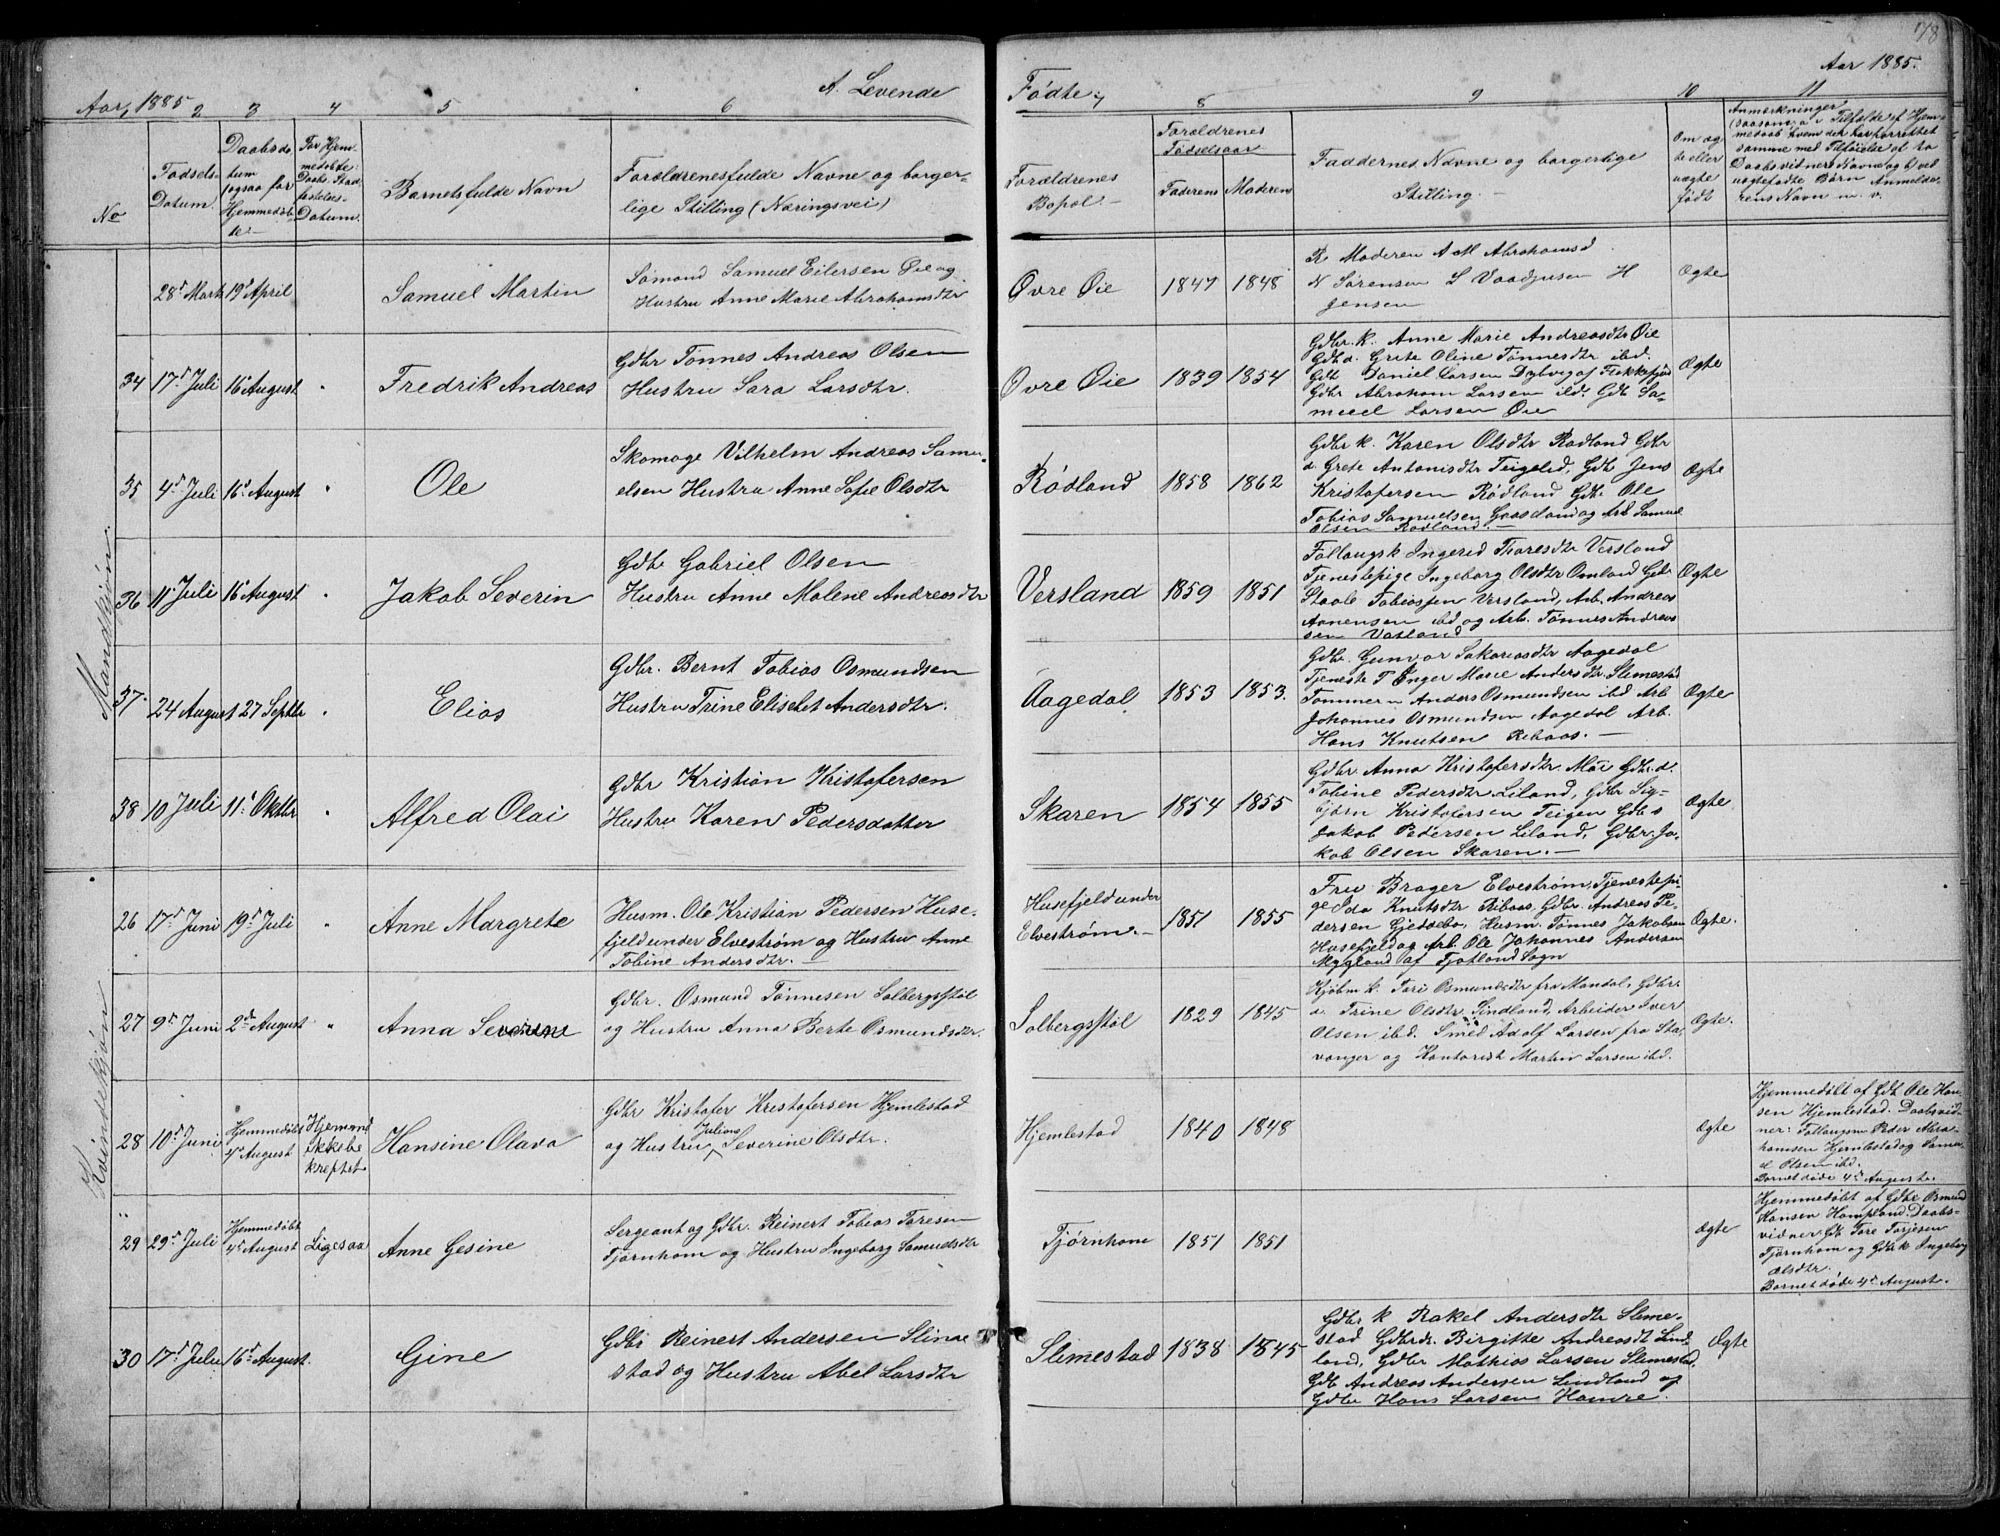 178
Aar 1885
A. Levende
Fødte
Aar 1885.
2 3 4 5 6 7 8 9 10 11
No
Fødsels-
Datum.
Daabsda-
tum
(ogsaa for
Hjemmedøb-
te
For Hjem-
medøbte:
Daabs Stad-
festelses-
Datum.
Barnets fulde Navn
Forældrenes fulde Navne og borger-
lige Stilling (Næringsvei)
Forældrenes
Bopæl.
Forældrenes
Fødselsaar
Faderens Moderens
Faddernes Navne og borgerlige
Stilling.
Om æg-
te eller
uægte
født
Anmærkninger
(saasom a i Tilfælde af Hjem-
medaab hvem der har forrettet
samme med Tilføielse af to
Daabsvidners Navne og b) ved
uægtefødte Børn Anmelde-
rens Navn m. v.
Mandkjøn.
28d Marts 19d April
Samuel Martin
Sømand Samuel Eilersen Øie og
Hustru Anne Marie Abrahamsdtr
Øvre Øie 1847 1848
R Moderen A M Abrahamsd
N Sørensen L Vaadjusen H
Jensen
Ægte
34 17d Juli 16 August "
Fredrik Andreas
Gdbr Tønnes Andreas Olsen
Hustru Sara Larsdtr.
Øvre Øie 1839 1854
Gdbr. k. Anne Marie Andreasdtr Øie
Gdb d. Grete Oline Tønnesdtr ibd.
Gdb Daniel Larsen Dybvig af Flekkefjord
Gdbr Abraham Larsen ibd. Gdb Sa-
muel Larsen Øie
Ægte
35 4d Juli 16d August "
Ole
Skomage Vilhelm Andreas Samu-
elsen Hustru Anne Sofie Olsdtr
Rødland 1858 1862
Gdbr k. Karen Olsdtr Rødland Gdbr
d. Grete Antonisdtr Teigelid, Gdb Jens
Kristofersen Rødland Gdb. Ole
Tobias Samuelsen Gaasland og Arb Samuel
Olsen Rødland.
Ægte
36 11 Juli 16 August "
Jakob Severin
Gdb. Gabriel Olsen
Hustru Anne Malene Andreasdtr
Versland 1859 1851
Føllaugsk Ingerid Tharesdtr Versland
Tjenestepige Ingeborg Olsdtr Omland Gdb.
Staale Tobiassen Versland, Arb. Andreas
Aanensen ibd og Arb. Tønnes Andreas
sen Vatland
Ægte
37. 24 August 27 Septbr "
Elias
Gdbr. Bernt Tobias Osmundsen
Hustru Trine Elischet Andersdtr.
Aagedal 1853 1853.
Gdbr. Gunvor Sakariasdtr Aagedal
Tjeneste P Inger Marie Andersdtr Slimestad
Tømmerm Anders Osmundsen ibd Arb
Johannes Osmundsen Aagedal Arb.
Hans Knutsen Ribaas.
Ægte
38 10 Juli 11d Oktbr "
Alfred Olai
Gdbr Kristian Kristofersen
Hustru Karen Pedersdatter
Skaren 1854 1855
Gdbr. Anna Kristofersdtr Moi Gdbr. d.
Tobine Pedersdtr Liland, Gdbr Sig-
bjørn Kristofersen Teigen Gdb s
Jakob Pedersen Liland, Gdbr. Ja-
kob Olsen Skaren.
Ægte
Kvindekjøn
26 17d Juni 19d Juli "
Anne Margrete
Husm. Ole Kristian Pedersen Huse-
fjeld under Elvestrøm og Hustru Anne
Tobine Andersdtr.
Husefjeld under
Elvestrøm. 1851 1855
Fru Brager Elvestrøm, Tjenestepi-
ge Ida Knutsdtr Ribaas Gdbr. Andreas Pe-
dersen Gjeddebo, Husm. Tønnes Jakobsen
Husefjeld og Arb. Ole Johannes Andersen
Mygland af Fjotland Sogn
Ægte.
27 9d Juni 2d August "
Anna Severine
Gdbr. Osmund Tønnesen Solbergsstøl
og Hustru Anna Berte Osmundsdtr.
Solbergsstøl 1829 1845
Kjøbm k. Tori Osmundsdtr fra Mandal, Gdbr.
d. Trine Olsdtr Sindland, Arbeider Iver
Olsen ibd. Smed Adolf Larsen fra Sta-
vanger og Kontorist Martin Larsen ibd.
Ægte.
28 10d Juni
Hjemmedøbt
4d August
Hjemmed
ikke be-
kreftet
Hansine Olava
Gdbr Kristofer Kristofersen Hjemlestad
og Hustru Juliane Severine Olsdtr.
Hjemlestad 1840 1848
Ægte
Hjemmedøbt af Gdb Ole Han-
sen Hjemlestad. Daabsvid-
ner: Føllaugsm Peder Abra-
hamsen Hjemlestad og Samu-
el Olsen ibd.
Barnet døde 4d August.
29 29d Juli
Hjemmedøbt
4d August
Ligesaa
Anne Gesine
Sergeant og Gdbr. Reinert Tobias Taresen
Tjørnhom og Hustru Ingeborg Samuelsdtr
Tjørnhom 1851 1851
Ægte
Hjemmedøbt af Gdbr Osmund
Hansen Hompland. Daabs-
vidner Gdb Tore Torjesen
Tjørnhom og Gdb k Ingeborg
Olsdtr.
Barnet døde 4d August.
30 17d Juli 16d August.
Gine
Gdbr Reinert Andersen Slime
stad og Hustru Abel Larsdtr
Slimestad 1838 1845
Gdbr k Rakel Andersdtr Slime-
stad Gdbr d. Birgitte Andreasdt Lind-
land, Gdbr Mathias Larsen Slimestad,
Gdb Andreas Andersen Lindland og
Gdbr Hans Larsen Hamre.
Ægte